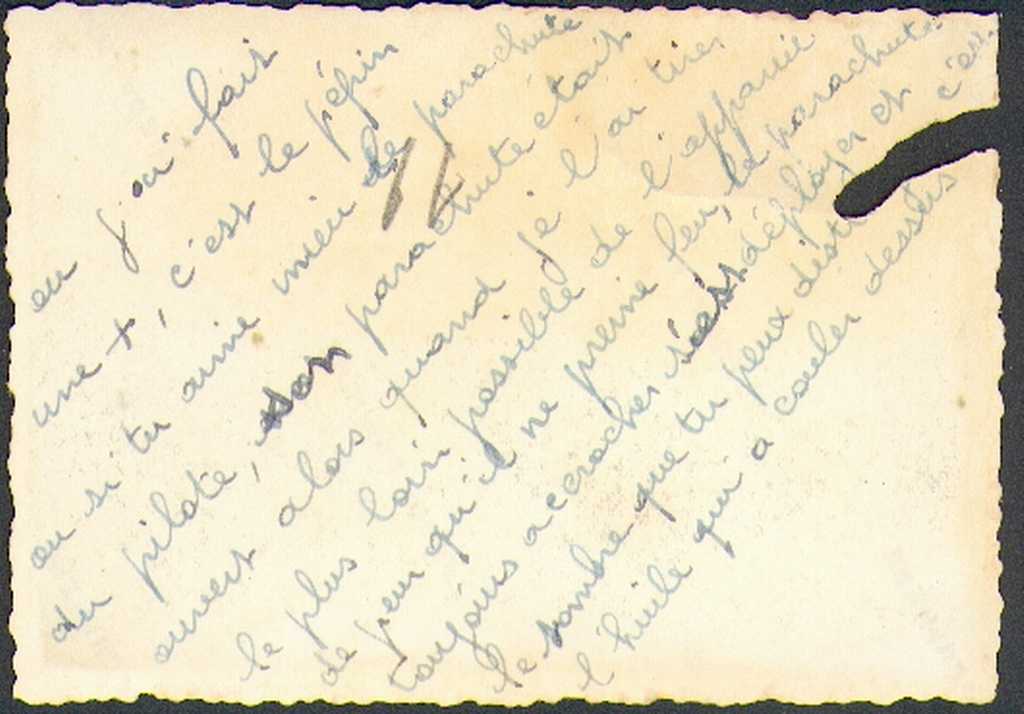 ou j'ai fait
une +, c'est le pépin
ou si tu aime mieu le parachute
du pilote, son parachute était
ouvert alors quand je l'on tirer
le plus loin possible de l'appareil
de peur qu'il ne prenne feu, le parachute
toujours accrocher s'est déployer et c'est
le sombre que tu peux dist
l'huile qui a couler dessus
11